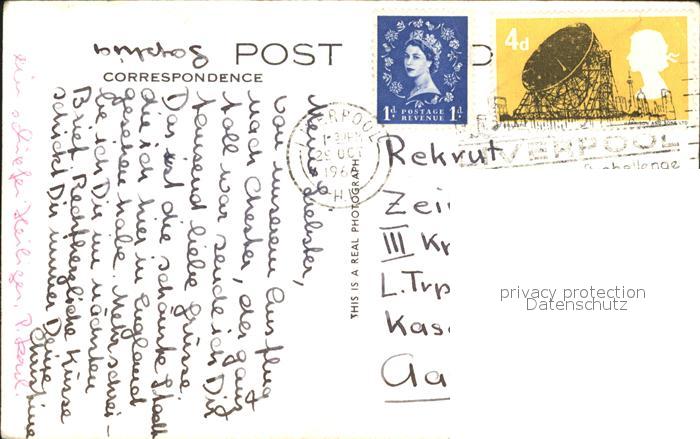 POST
CORRESPONDENCE
Sophia
Mein Liebster,
von unserem Ausflug
nach Chester, der ganz
toll war sende ich Dir
tausend liebe Grüsse.
Das ist die schönste Stadt
die ich hier in England
gesehen habe. Mehr schrei-
be ich Dir im nächsten
Brief. Rechtherzliche Küsse
schickt Dir immer Deine
Christine
ein schiefer Heiliger, P. Karl.
THIS IS A REAL PHOTOGRAPH
1d. POSTAGE REVENUE 1d.
4d
LIVERPOOL
OCT
196
VERPOOL
challenge
Rekrut
Zei
III Kp
L. Trp
Kas
Aa
privacy protection
Datenschutz